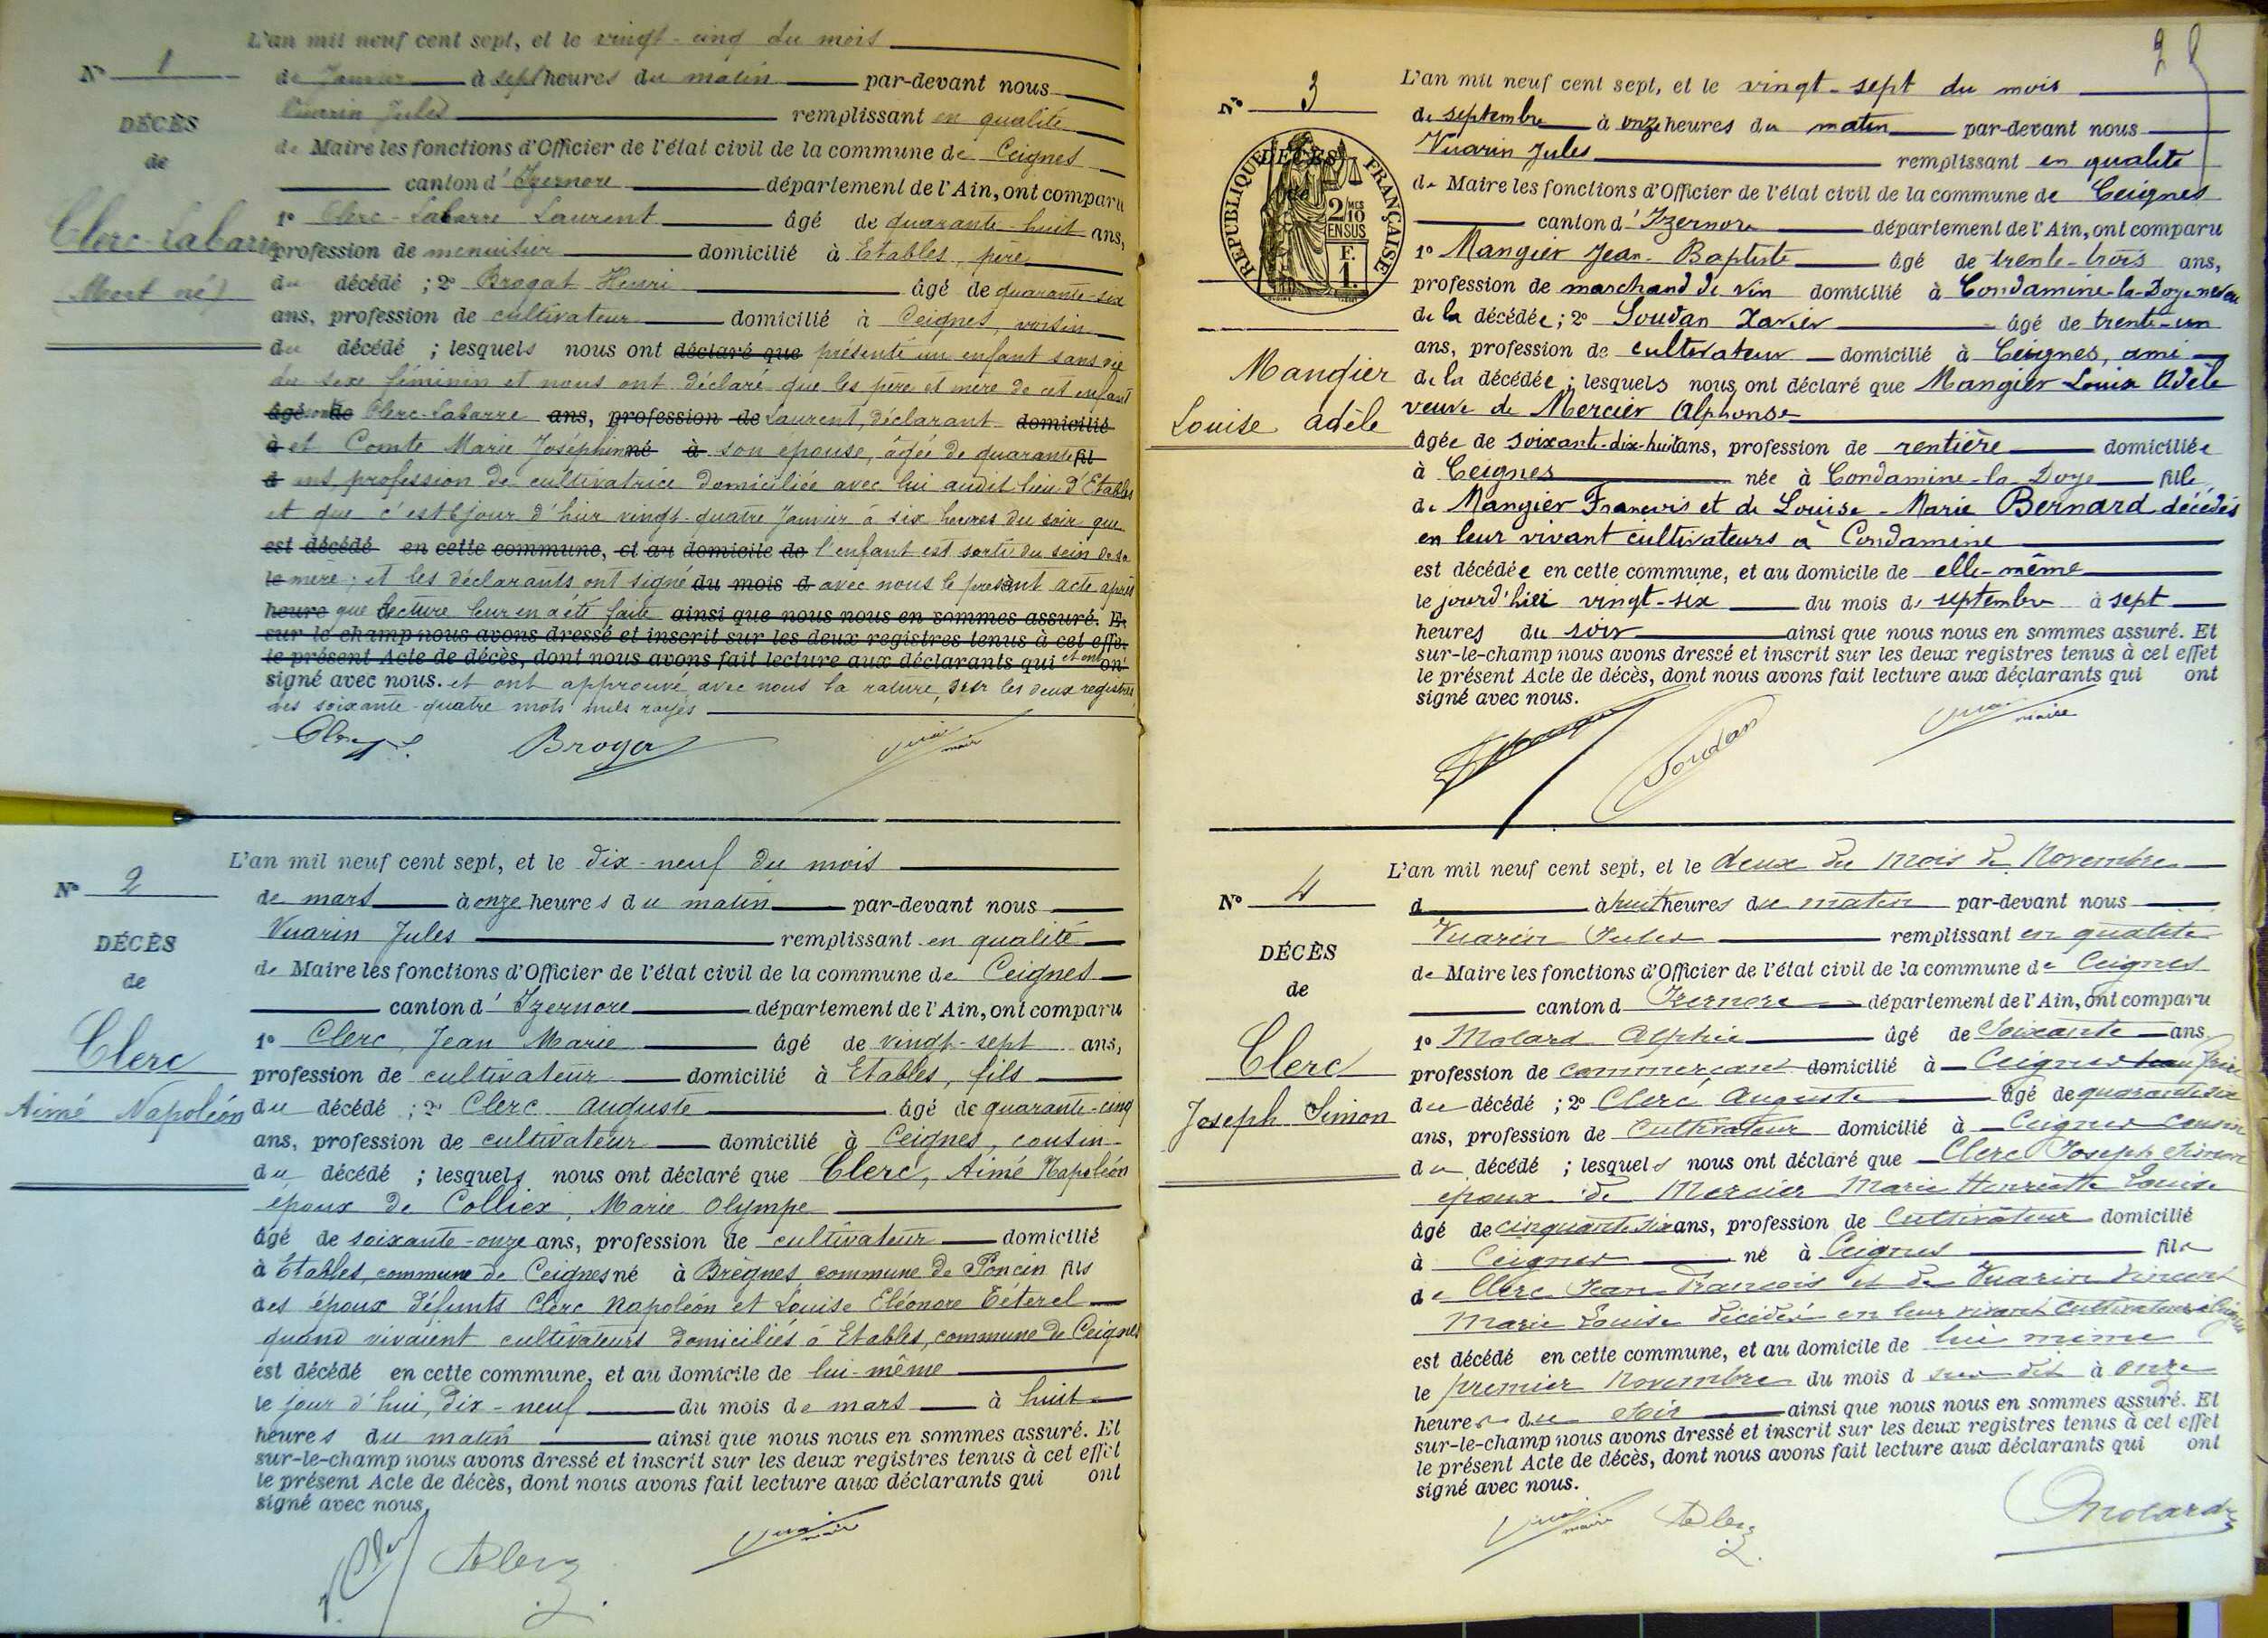 L'an mil neuf cent sept, et le vingt-cinq du mois
N° 1
de Janvier à sept heures du matin par-devant nous
Vuarin Jules remplissant en qualité
DÉCÈS
de Maire les fonctions d'Officier de l'état civil de la commune de Ceignes
de
canton d'Izernore département de l'Ain, ont comparu
Clerc-Labarre
1° Clerc-Labarre Laurent âgé de quarante-huit ans,
profession de menuisier domicilié à Etables, père
Mort né
du décédé ; 2° Brogat Henri âgé de quarante-six
ans, profession de cultivateur domicilié à Ceignes, voisin
du décédé ; lesquels nous ont déclaré que présenté un enfant sans vie
du sexe féminin et nous ont déclaré que les père et mère de cet enfant
âgé de Clerc-Labarre ans, profession de Laurent, déclarant domicilié
à et Comte Marie Joséphine né à son épouse, âgée de quarante fil
d ans, profession de cultivatrice domiciliée avec lui audit lieu d'Etables
et que c'est jour d'hier vingt-quatre Janvier à six heures du soir que
est décédé en cette commune, et au domicile de l'enfant est sorti du sein de sa
le mère ; et les déclarants ont signé du mois d avec nous le présent acte après
heure que lecture leur en a été faite ainsi que nous nous en sommes assuré. Et
sur le champ nous avons dressé et inscrit sur les deux registres tenus à cet effet
le présent Acte de décès, dont nous avons fait lecture aux déclarants qui et ont ont
signé avec nous. et ont approuvé avec nous la rature, sur les deux registres
des soixante-quatre mots nuls rayés
Clerc Brogat Vuarin maire
L'an mil neuf cent sept, et le dix-neuf du mois
N° 2
de mars à onze heures du matin par-devant nous
Vuarin Jules remplissant en qualité
DÉCÈS
de Maire les fonctions d'Officier de l'état civil de la commune de Ceignes
de
canton d'Izernore département de l'Ain, ont comparu
Clerc
1° Clerc, Jean Marie âgé de vingt-sept ans,
profession de cultivateur domicilié à Etables, fils
Aimé Napoléon
du décédé ; 2° Clerc Auguste âgé de quarante-cinq
ans, profession de cultivateur domicilié à Ceignes, cousin
du décédé ; lesquels nous ont déclaré que Clerc, Aimé Napoléon
époux de Colliex, Marie Olympe
âgé de soixante-onze ans, profession de cultivateur domicilié
à Etables, commune de Ceignes né à Brègnes, commune de Poncin fils
des époux défunts Clerc Napoléon et Louise Eléonore Teterel
quand vivaient cultivateurs domiciliés à Etables, commune de Ceignes
est décédé en cette commune, et au domicile de lui-même
le jour d'hui, dix-neuf du mois de mars à huit
heures du matin ainsi que nous nous en sommes assuré. Et
sur-le-champ nous avons dressé et inscrit sur les deux registres tenus à cet effet
le présent Acte de décès, dont nous avons fait lecture aux déclarants qui ont
signé avec nous.
Clerc A Clerc Vuarin maire
L'an mil neuf cent sept, et le vingt-sept du mois
N° 3
de septembre à onze heures du matin par-devant nous
DÉCÈS
RÉPUBLIQUE FRANÇAISE
2/10 MES EN SUS
F. 1.
Vuarin Jules remplissant en qualité
de Maire les fonctions d'Officier de l'état civil de la commune de Ceignes
canton d'Izernore département de l'Ain, ont comparu
1° Mangier Jean-Baptiste âgé de trente-trois ans,
profession de marchand de vin domicilié à Condamine-la-Doye neveu
de la décédée ; 2° Soudan Xavier âgé de trente-un
ans, profession de cultivateur domicilié à Ceignes, ami
Mangier
Louise Adèle
de la décédée ; lesquels nous ont déclaré que Mangier Louise Adèle
veuve de Mercier Alphonse
âgée de soixante-dix-huit ans, profession de rentière domiciliée
à Ceignes née à Condamine-la-Doye fille
de Mangier François et de Louise-Marie Bernard décédés
en leur vivant cultivateurs à Condamine
est décédée en cette commune, et au domicile de elle-même
le jourd'hier vingt-six du mois de septembre à sept
heures du soir ainsi que nous nous en sommes assuré. Et
sur-le-champ nous avons dressé et inscrit sur les deux registres tenus à cet effet
le présent Acte de décès, dont nous avons fait lecture aux déclarants qui ont
signé avec nous.
Soudan Vuarin maire
L'an mil neuf cent sept, et le deux du mois de Novembre
N° 4
d à huit heures du matin par-devant nous
Vuarin Jules remplissant en qualité
DÉCÈS
de Maire les fonctions d'Officier de l'état civil de la commune de Ceignes
de
canton d Izernore département de l'Ain, ont comparu
Clerc
1° Molard Alphée âgé de soixante ans
profession de commerçant domicilié à Ceignes beau frère
Joseph Simon
du décédé ; 2° Clerc Auguste âgé de quarante six
ans, profession de cultivateur domicilié à Ceignes cousin
du décédé ; lesquels nous ont déclaré que Clerc Joseph Simon
époux de Mercier Marie Henriette Louise
âgé de cinquante six ans, profession de cultivateur domicilié
à Ceignes né à Ceignes fils
de Clerc Jean François et de Vuarin Vincent
Marie Louise décédés en leur vivant cultivateurs à Ceignes
est décédé en cette commune, et au domicile de lui même
le premier Novembre du mois d sus dit à onze
heures du soir ainsi que nous nous en sommes assuré. Et
sur-le-champ nous avons dressé et inscrit sur les deux registres tenus à cet effet
le présent Acte de décès, dont nous avons fait lecture aux déclarants qui ont
signé avec nous.
Vuarin maire A Clerc Molard